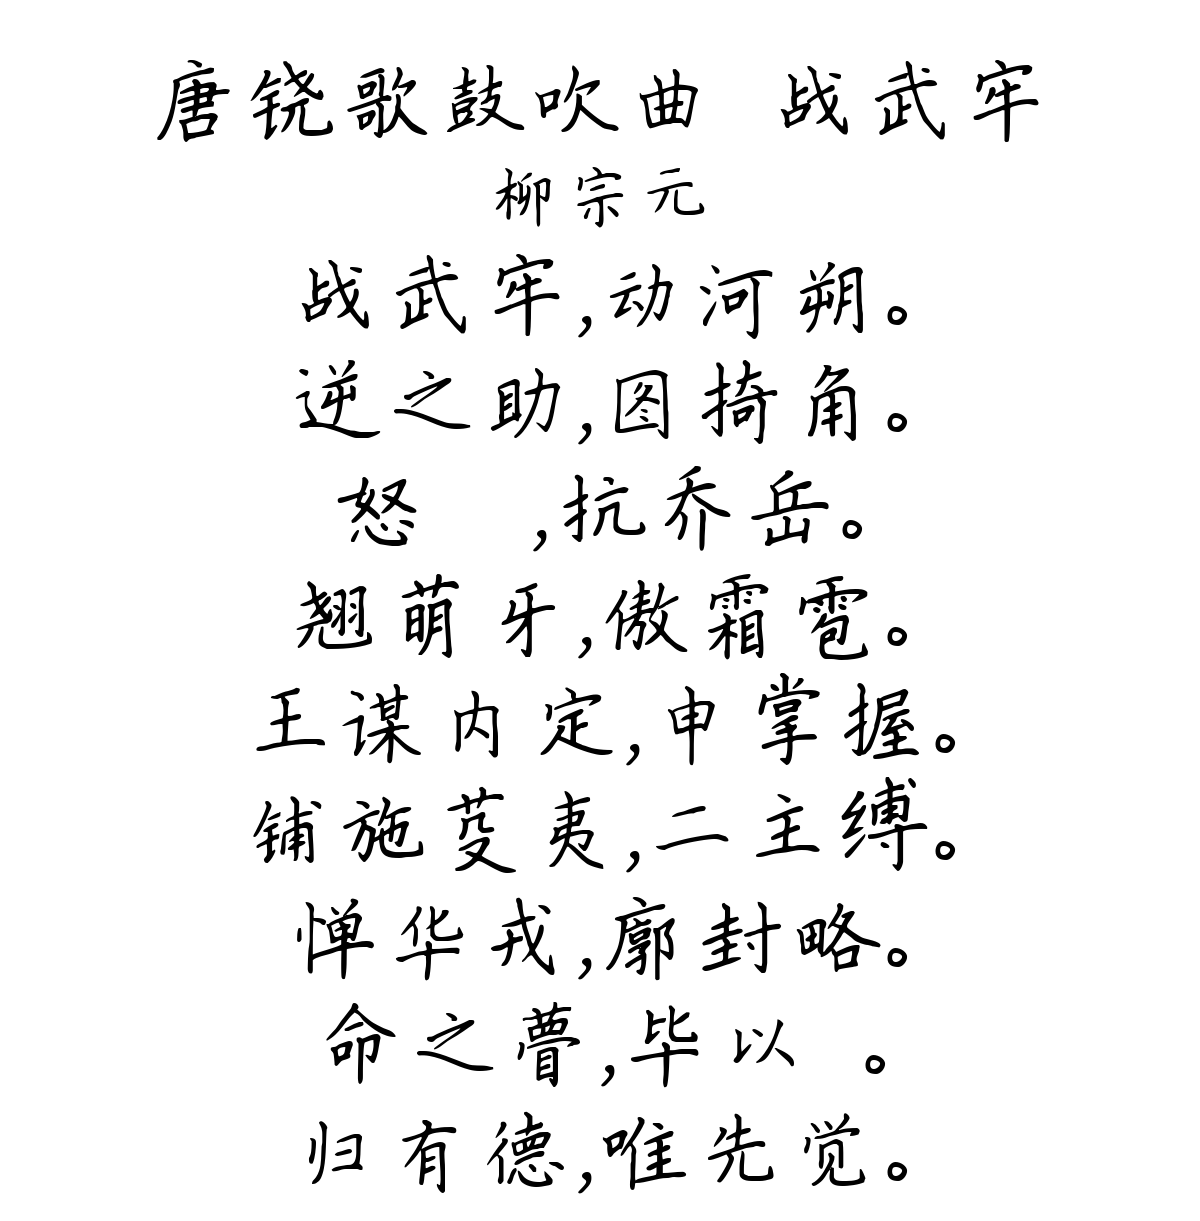 唐铙歌鼓吹曲 战武牢
柳宗元
战武牢,动河朔。
逆之助,图掎角。
怒 ,抗乔岳。
翘萌牙,傲霜雹。
王谋内定,申掌握。
铺施芟夷,二主缚。
惮华戎,廓封略。
命之瞢,毕以 。
归有德,唯先觉。